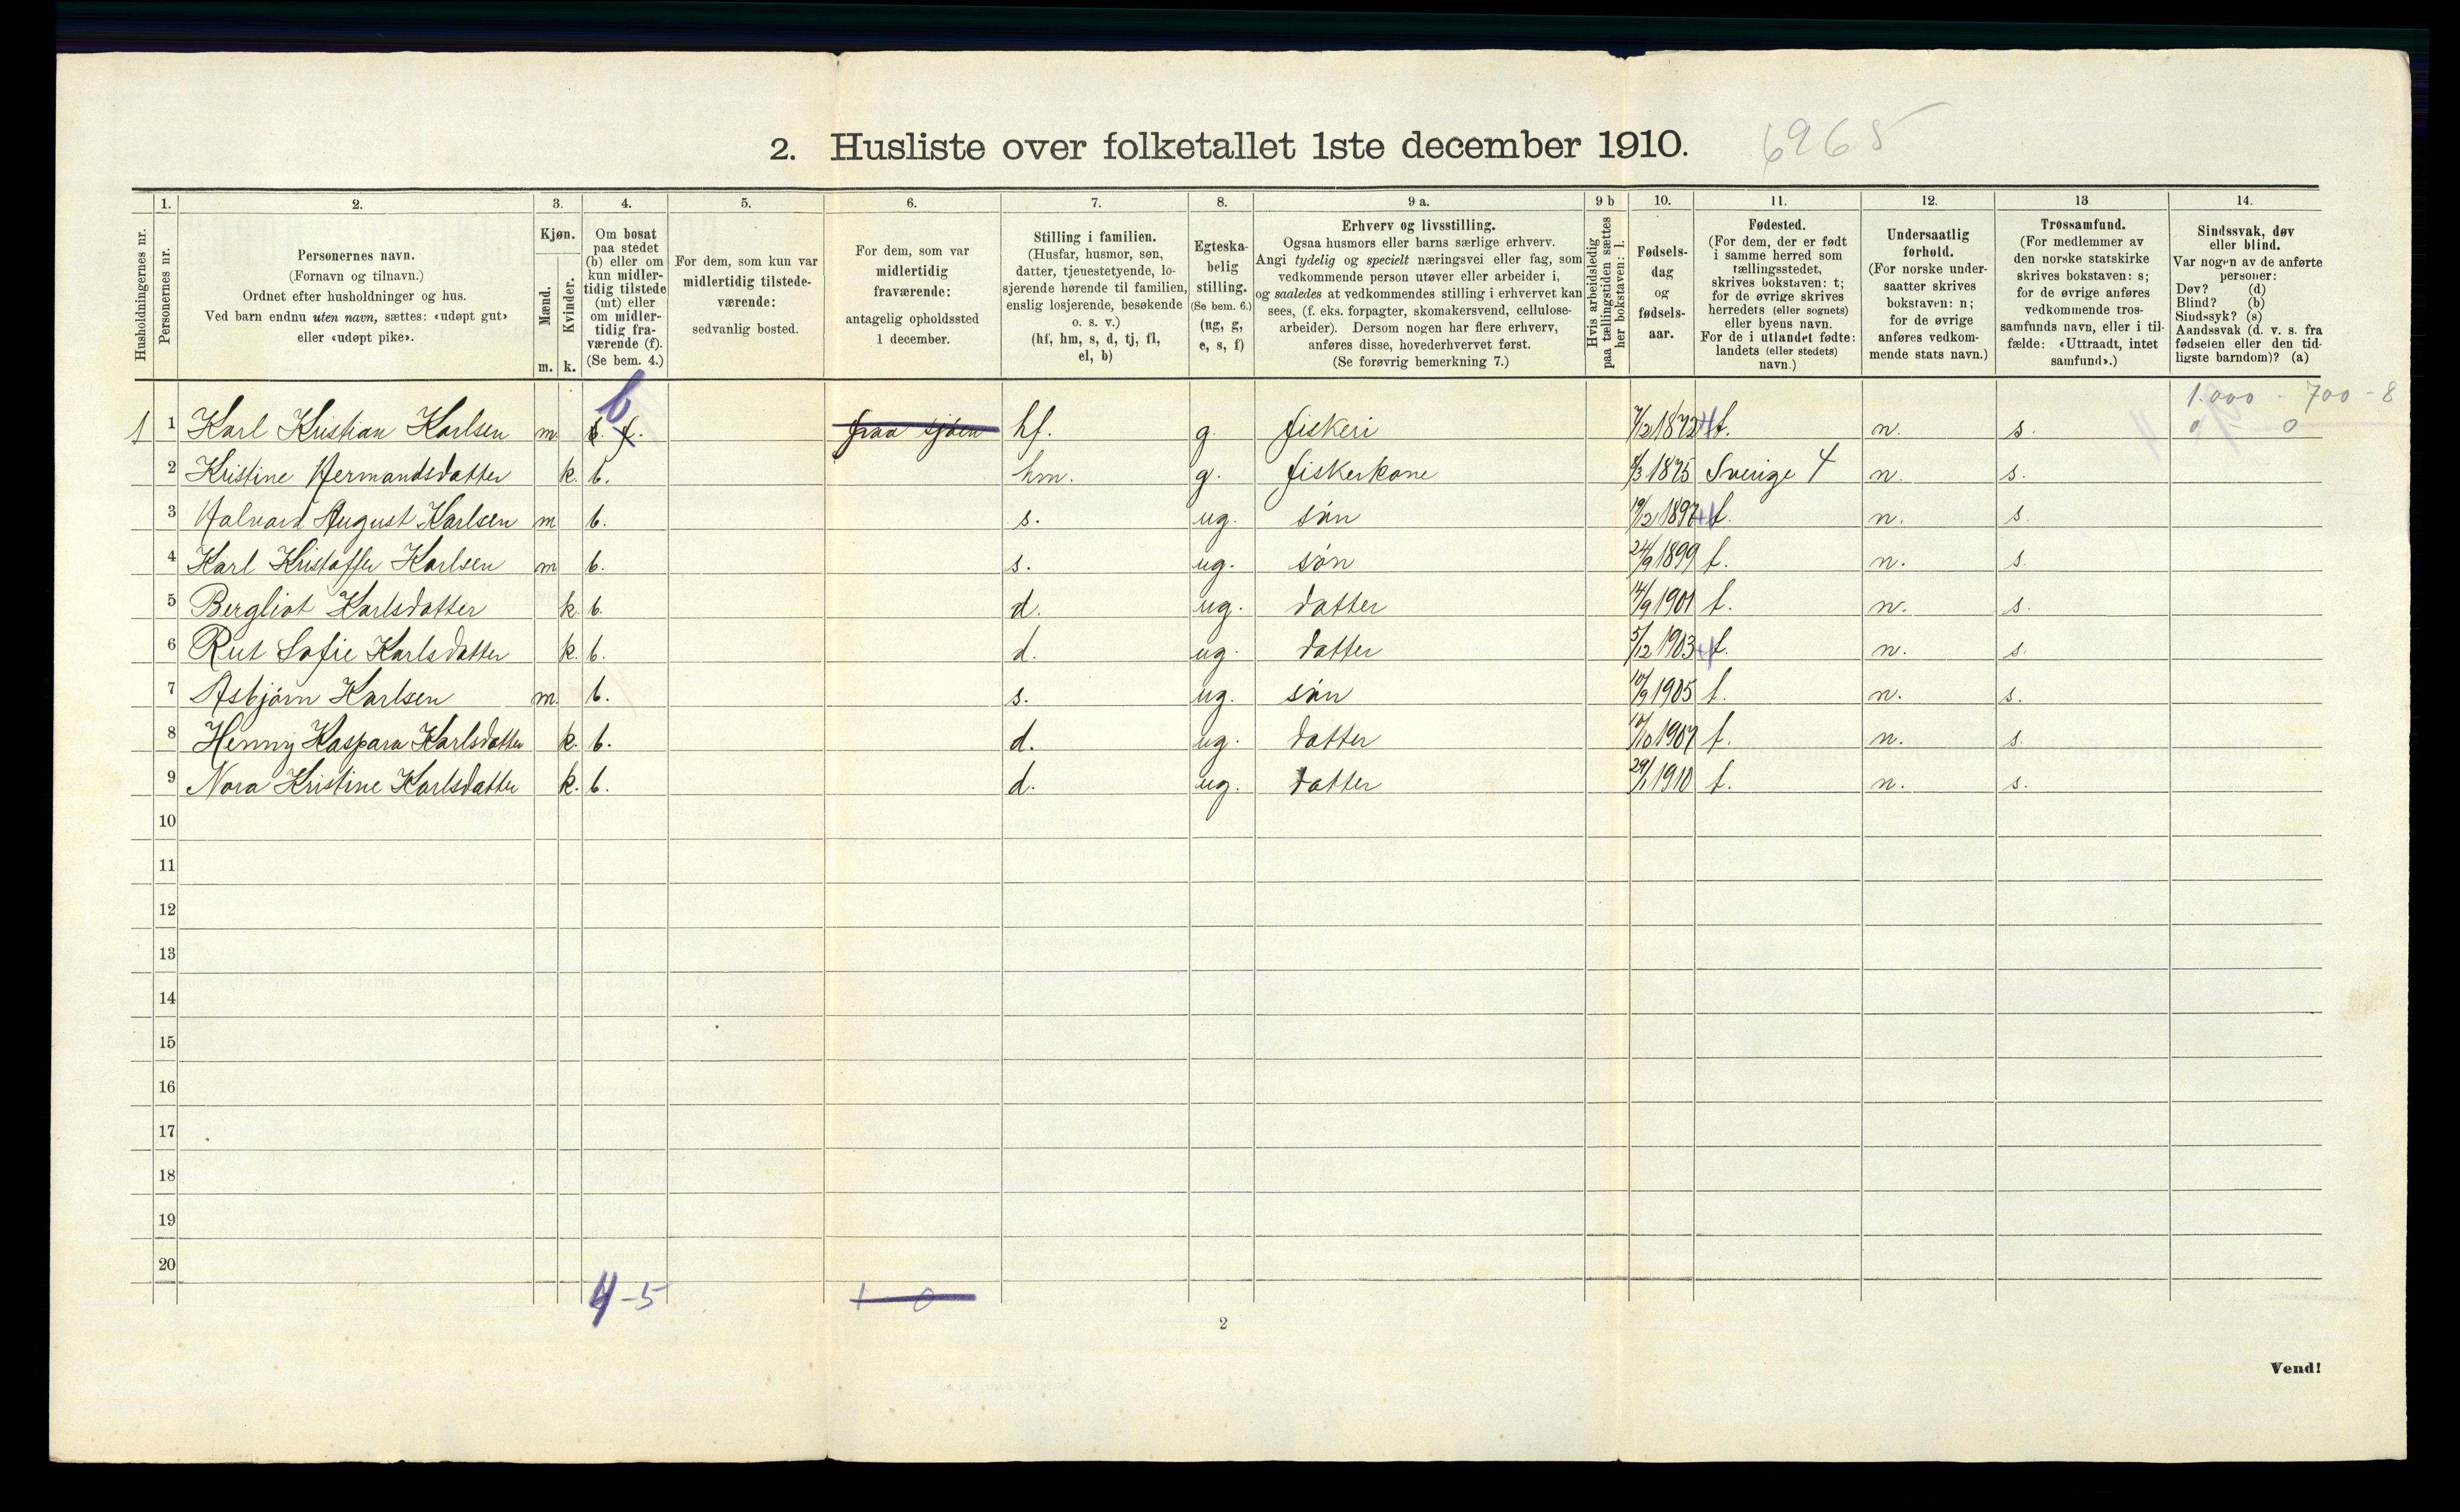 2. Husliste over folketallet 1ste december 1910. 6965
Husholdningernes nr.
1. Personernes nr.
2. Personernes navn.
(Fornavn og tilnavn.)
Ordnet efter husholdninger og hus.
Ved barn endnu uten navn, sættes: «udøpt gut»
eller «udøpt pike».
3. Kjøn.
Mænd. m.
Kvinder. k.
4. Om bosat
paa stedet
(b) eller om
kun midler-
tidig tilstede
(mt) eller
om midler-
tidig fra-
værende (f).
(Se bem. 4.)
5. For dem, som kun var
midlertidig tilstede-
værende:
sedvanlig bosted.
6. For dem, som var
midlertidig
fraværende:
antagelig opholdssted
1 december.
7. Stilling i familien.
(Husfar, husmor, søn,
datter, tjenestetyende, lo-
sjerende hørende til familien,
enslig losjerende, besøkende
o. s. v.)
(hf, hm, s, d, tj, fl,
el, b)
8. Egteska-
belig
stilling.
(Se bem. 6.)
(ug, g,
e, s, f)
9 a. Erhverv og livsstilling.
Ogsaa husmors eller barns særlige erhverv.
Angi tydelig og specielt næringsvei eller fag, som
vedkommende person utøver eller arbeider i,
og saaledes at vedkommendes stilling i erhvervet kan
sees, (f. eks. forpagter, skomakersvend, cellulose-
arbeider). Dersom nogen har flere erhverv,
anføres disse, hovederhvervet først.
(Se forøvrig bemerkning 7.)
9 b Hvis arbeidsledig
paa tællingstiden sættes
her bokstaven: l.
10. Fødsels-
dag
og
fødsels-
aar.
11. Fødested.
(For dem, der er født
i samme herred som
tællingsstedet,
skrives bokstaven: t;
for de øvrige skrives
herredets (eller sognets)
eller byens navn.
For de i utlandet fødte:
landets (eller stedets)
navn.)
12. Undersaatlig
forhold.
(For norske under-
saatter skrives
bokstaven: n;
for de øvrige
anføres vedkom-
mende stats navn.)
13 Trossamfund.
(For medlemmer av
den norske statskirke
skrives bokstaven: s;
for de øvrige anføres
vedkommende tros-
samfunds navn, eller i til-
fælde: «Uttraadt, intet
samfund».)
14. Sindssvak, døv
eller blind.
Var nogen av de anførte
personer:
Døv? (d)
Blind? (b)
Sindssyk? (s)
Aandssvak (d. v. s. fra
fødselen eller den tid-
ligste barndom)? (a)
b 1.000 - 700 - 8
1 1 Karl Kristian Karlsen m. b. f. fraa sjøen hf. g. fiskeri 7/12 1872 t. n. s. 0 - 0
2 Kristine Hermandsdatter k. b. hm. g. fiskerkone 8/3 1875 Sverige 4 n. s.
3 Halvard August Karlsen m b. s. ug. søn 19/2 1897 t. n. s.
4 Karl Kristoffer Karlsen m b. s. ug. søn 24/9 1899 t. n. s.
5 Bergliot Karlsdatter k. b. d. ug. datter 14/9 1901 t. n. s.
6 Rut Sofie Karlsdatter k. b. d. ug. datter 5/12 1903 t. n. s.
7 Asbjørn Karlsen m. b. s. ug. søn 10/9 1905 t. n. s.
8 Henny Kaspara Karlsdatter k. b. d. ug. datter 10/10 1907 t. n. s.
9 Nora Kristine Karlsdatter k. b. d. ug. datter 29/1 1910 t. n. s.
10
11
12
13
14
15
16
17
18
19
20
4-5 1 - 0
2
Vend!